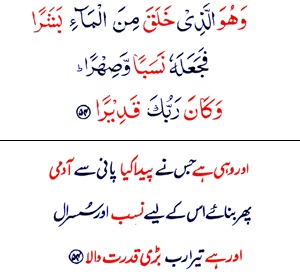 وَهُوَ الَّذِیْ خَلَقَ مِنَ الْمَآءِ بَشَرًا
فَجَعَلَهٗ نَسَبًا وَّصِهْرًا ؕ
وَكَانَ رَبُّكَ قَدِیْرًا ﴿۵۴﴾
اور وہی ہے جس نے پیدا کیا پانی سے آدمی
پھر بنائے اس کے لیے نسب اور سُسرال
اور ہے تیرا رب بڑی قدرت والا ﴿۵۴﴾